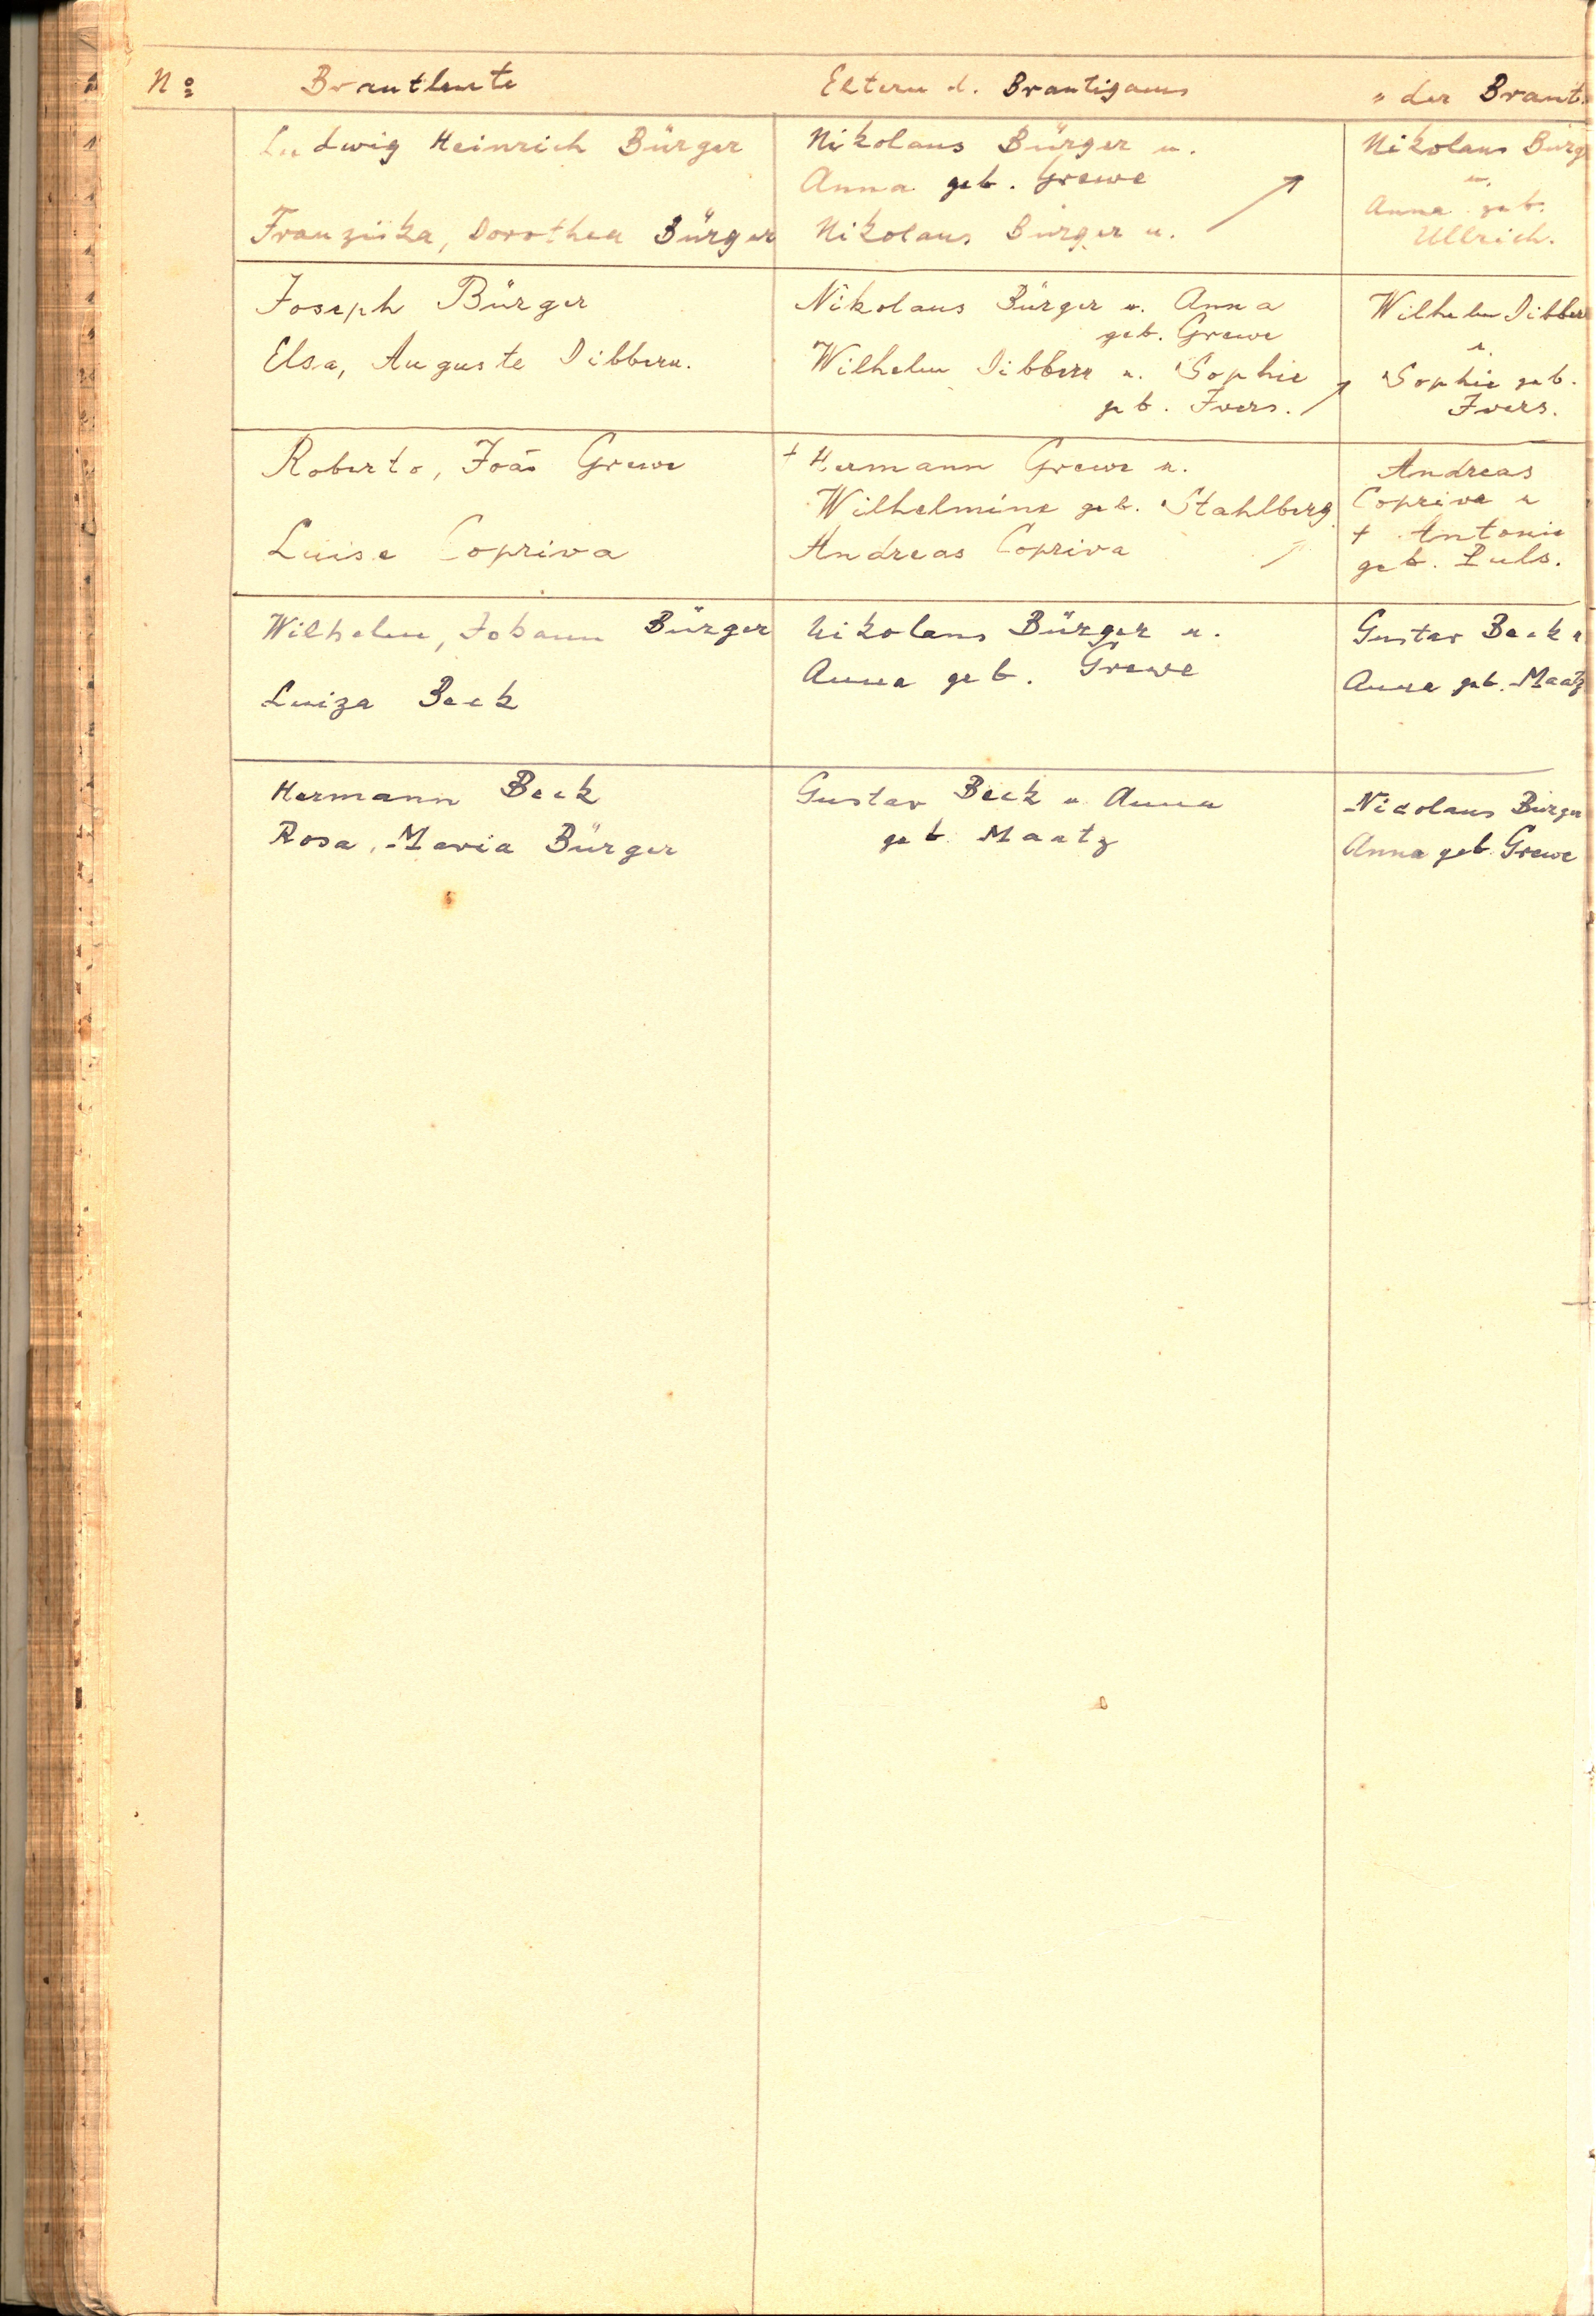 No Brautleute Eltern d. Bräutigams " der Braut.
Ludwig Heinrich Bürger
Franziska, Dorothea Bürger
Nikolaus Bürger u.
Anna geb. Grewe
Nikolaus Bürger u.
Nikolaus Bürg
u.
Anna geb.
Ullrich.
Joseph Bürger
Elsa, Auguste Dibbern.
Nikolaus Bürger u. Anna
geb. Grewe
Wilhelm Dibbern u. Sophie
geb. Ivers.
Wilhelm Dibber
u.
Sophie geb.
Ivers.
Roberto, João Grewe
Luise Copriva
† Hermann Grewe u.
Wilhelmine geb. Stahlberg
Andreas Copriva
Andreas
Copriva u
† Antonie
geb. Puls.
Wilhelm, Johann Bürger
Luiza Beck
Nikolaus Bürger u.
Anna geb. Grewe
Gustav Beck u
Anna geb. Maatz
Hermann Beck
Rosa, Maria Bürger
Gustav Beck u. Anna
geb. Maatz
Nicolaus Bürger
Anna geb. Grewe